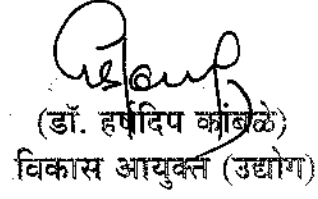 (डॉ. हर्षदिप कांबळे)
विकास आयुक्त (उद्योग)